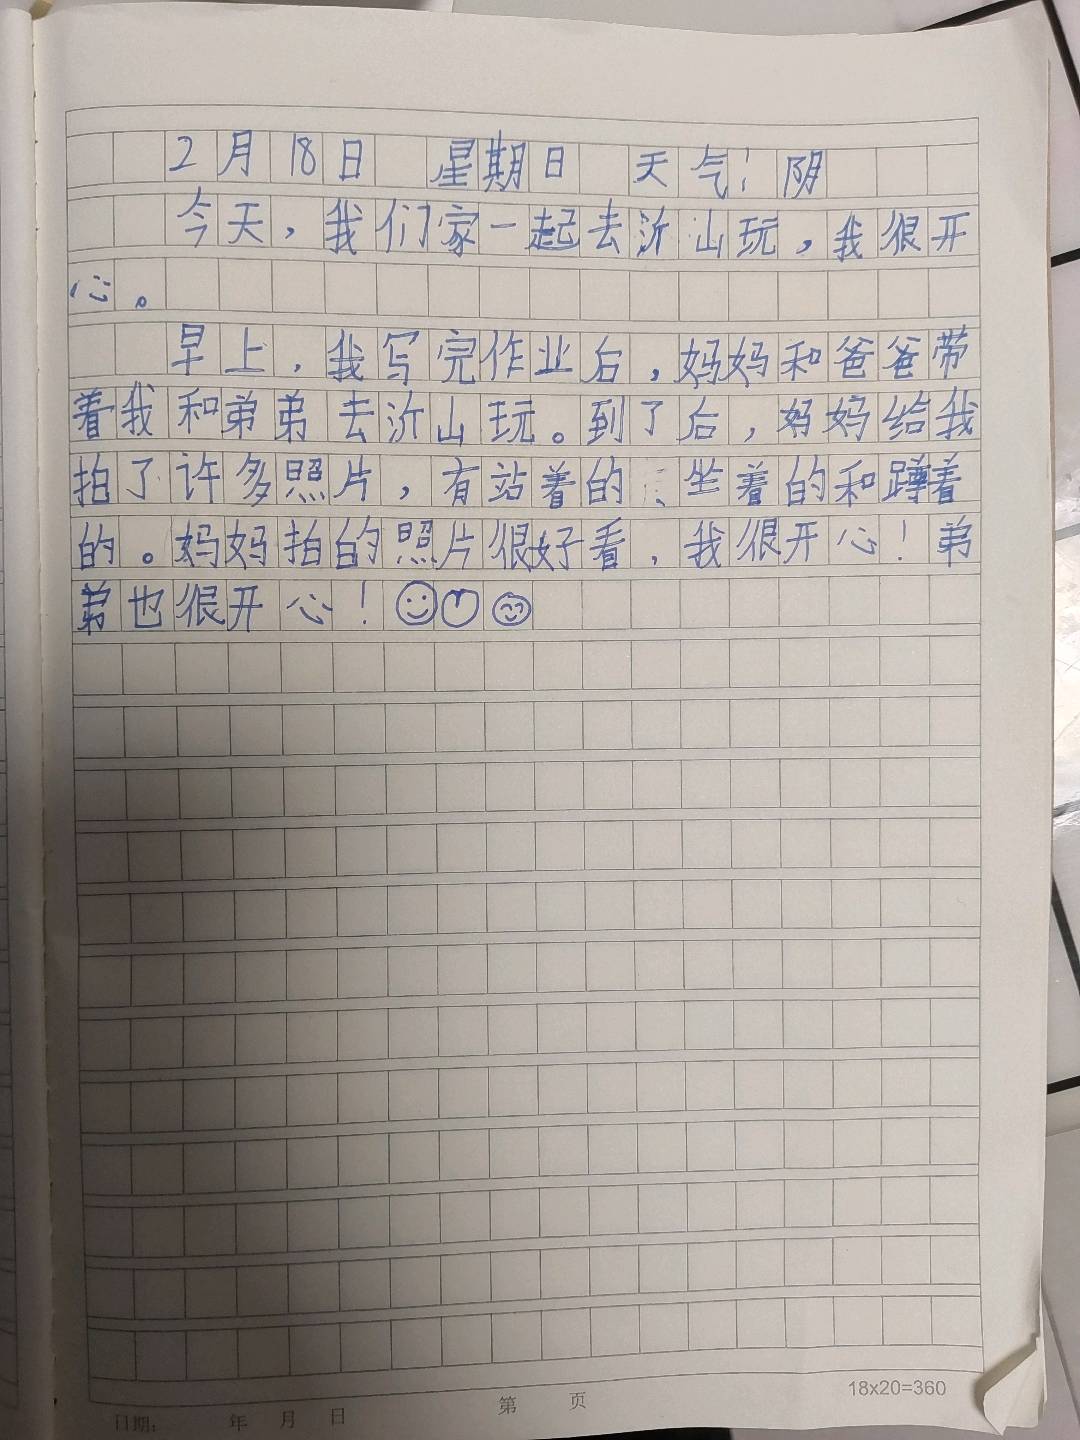 2月18日 星期日 天气：阴
今天，我们家一起去沂山玩，我很开
心。
早上，我写完作业后，妈妈和爸爸带
着我和弟弟去沂山玩。到了后，妈妈给我
拍了许多照片，有站着的、坐着的和蹲着
的。妈妈拍的照片很好看，我很开心！弟
弟也很开心！
日期： 年 月 日 第 页 18x20=360